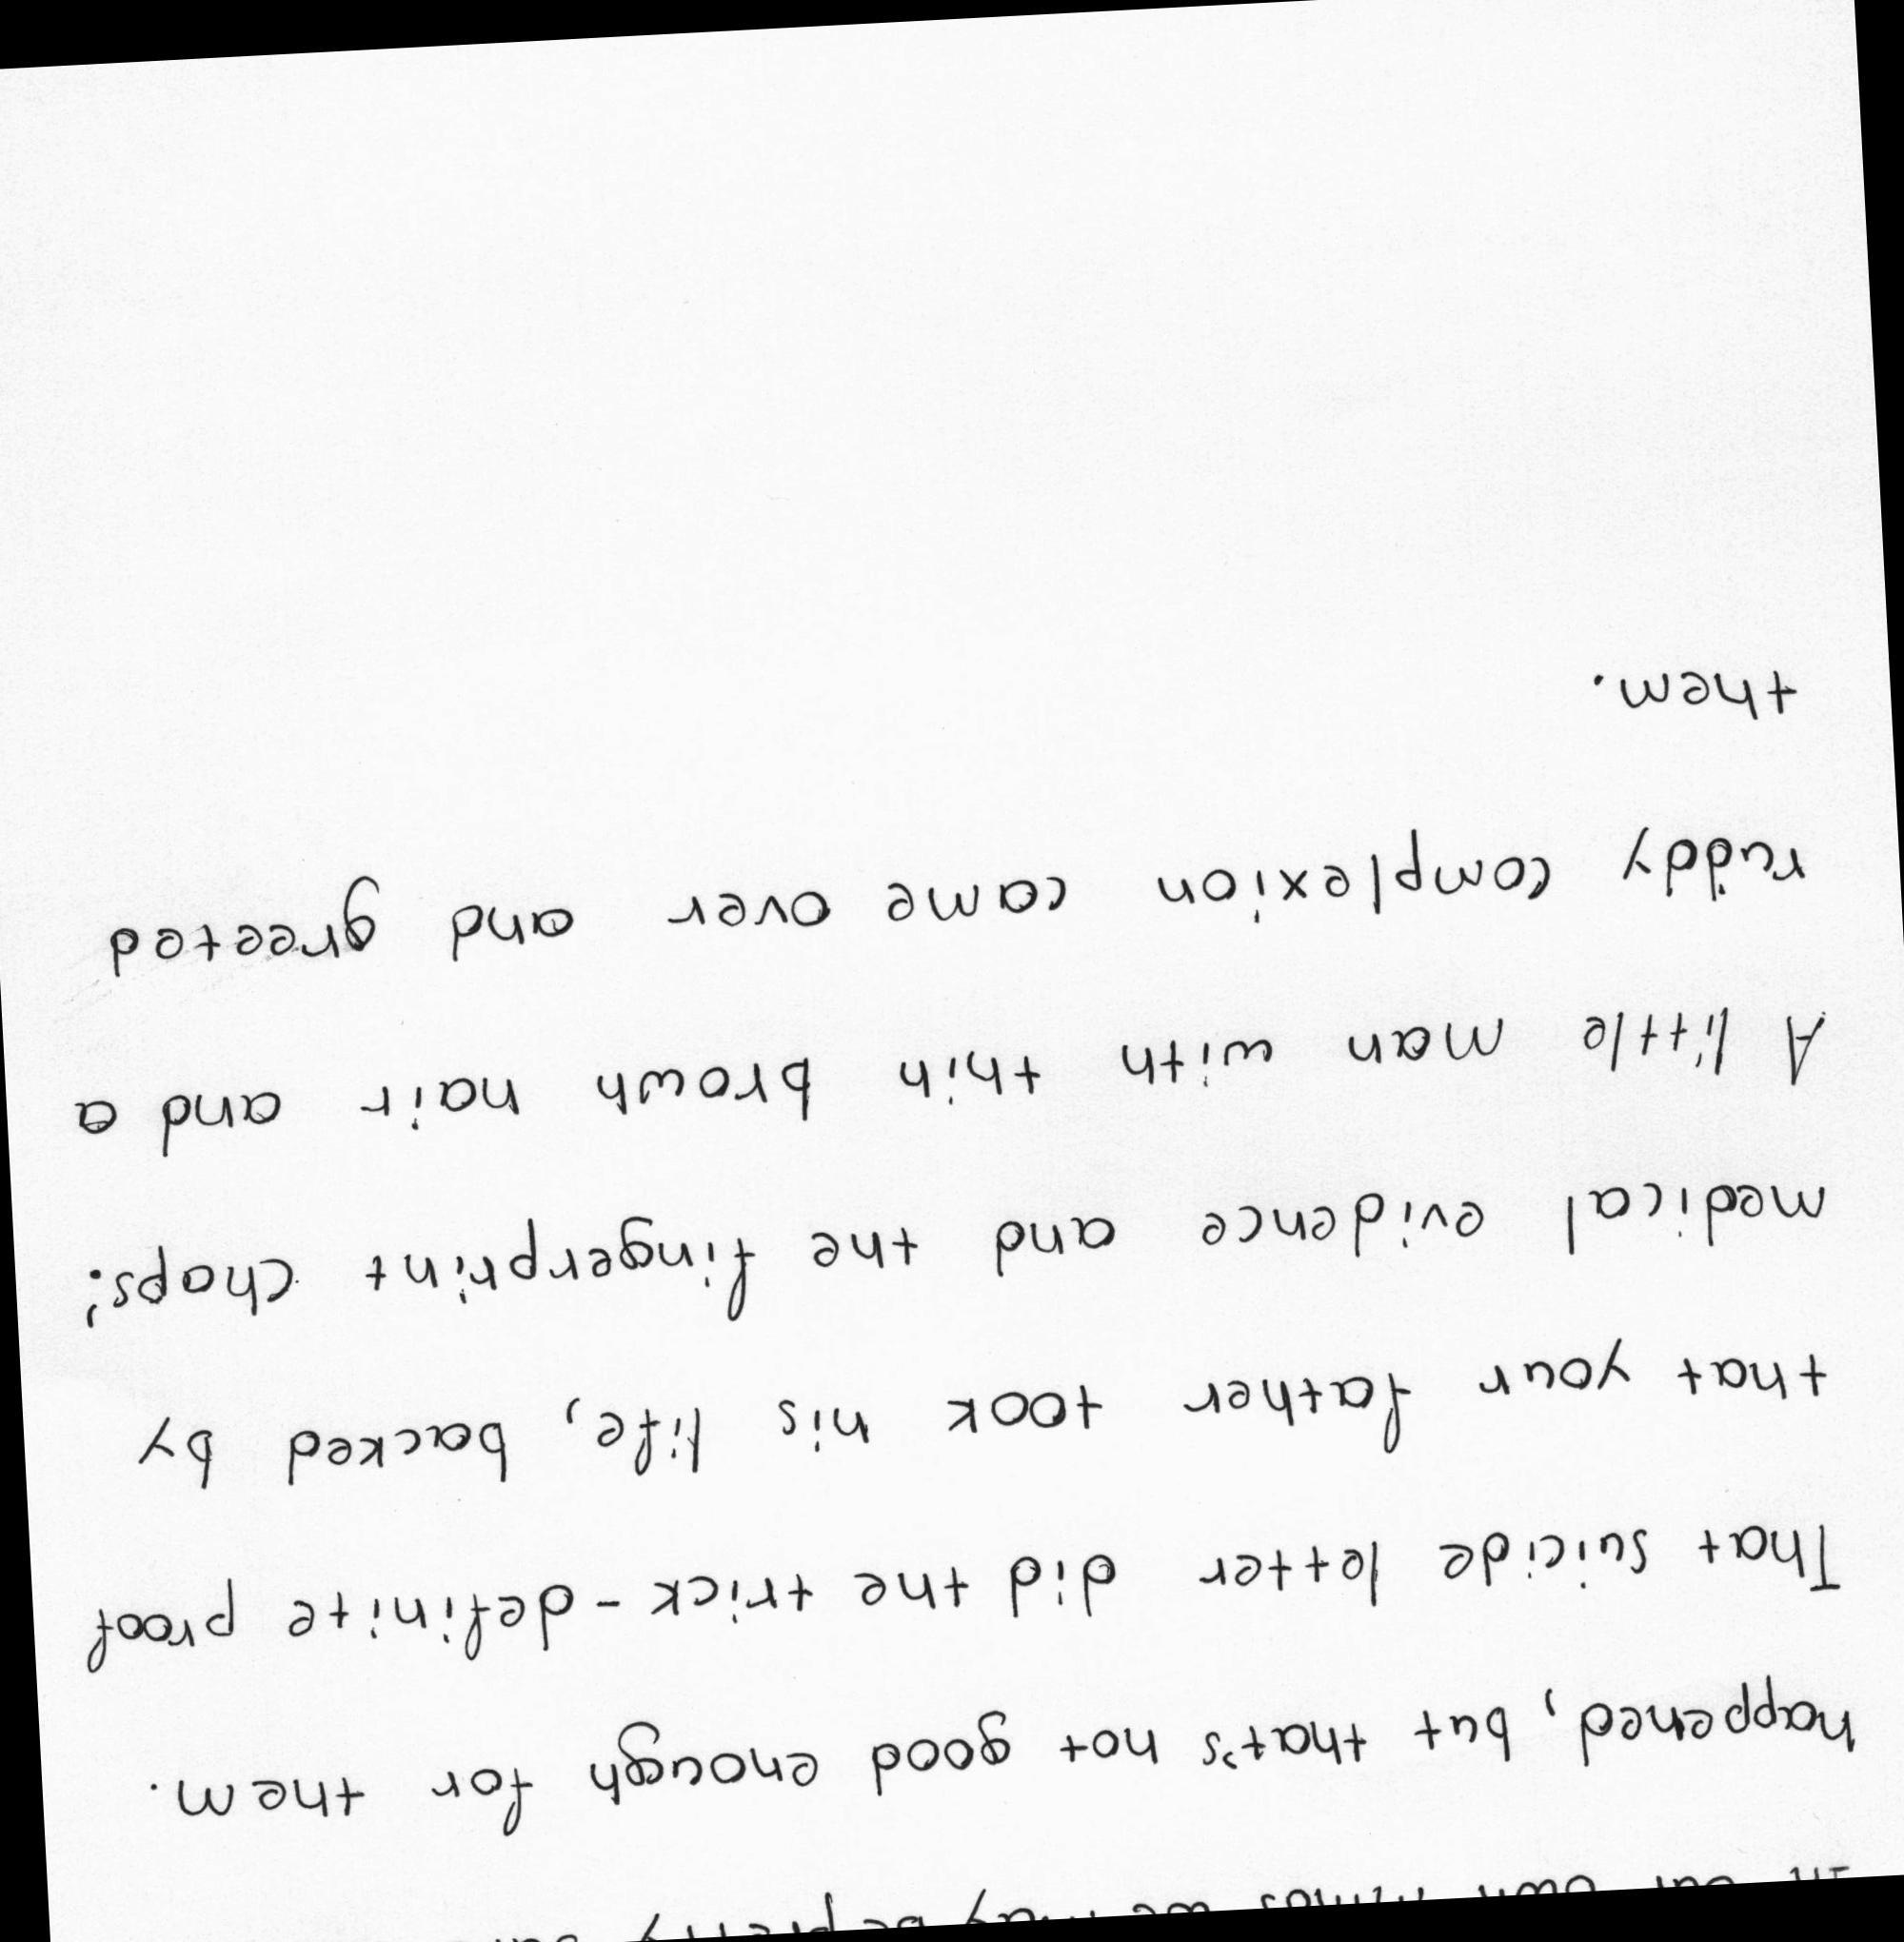 In our own minds we may be pretty
happened, but that's not good enough for them.
That suicide letter did the trick - definite proof
that your father took his life, backed by
medical evidence and the fingerprint chaps;
A little man with thin brown hair and a
ruddy complexion came over and greeted
them.